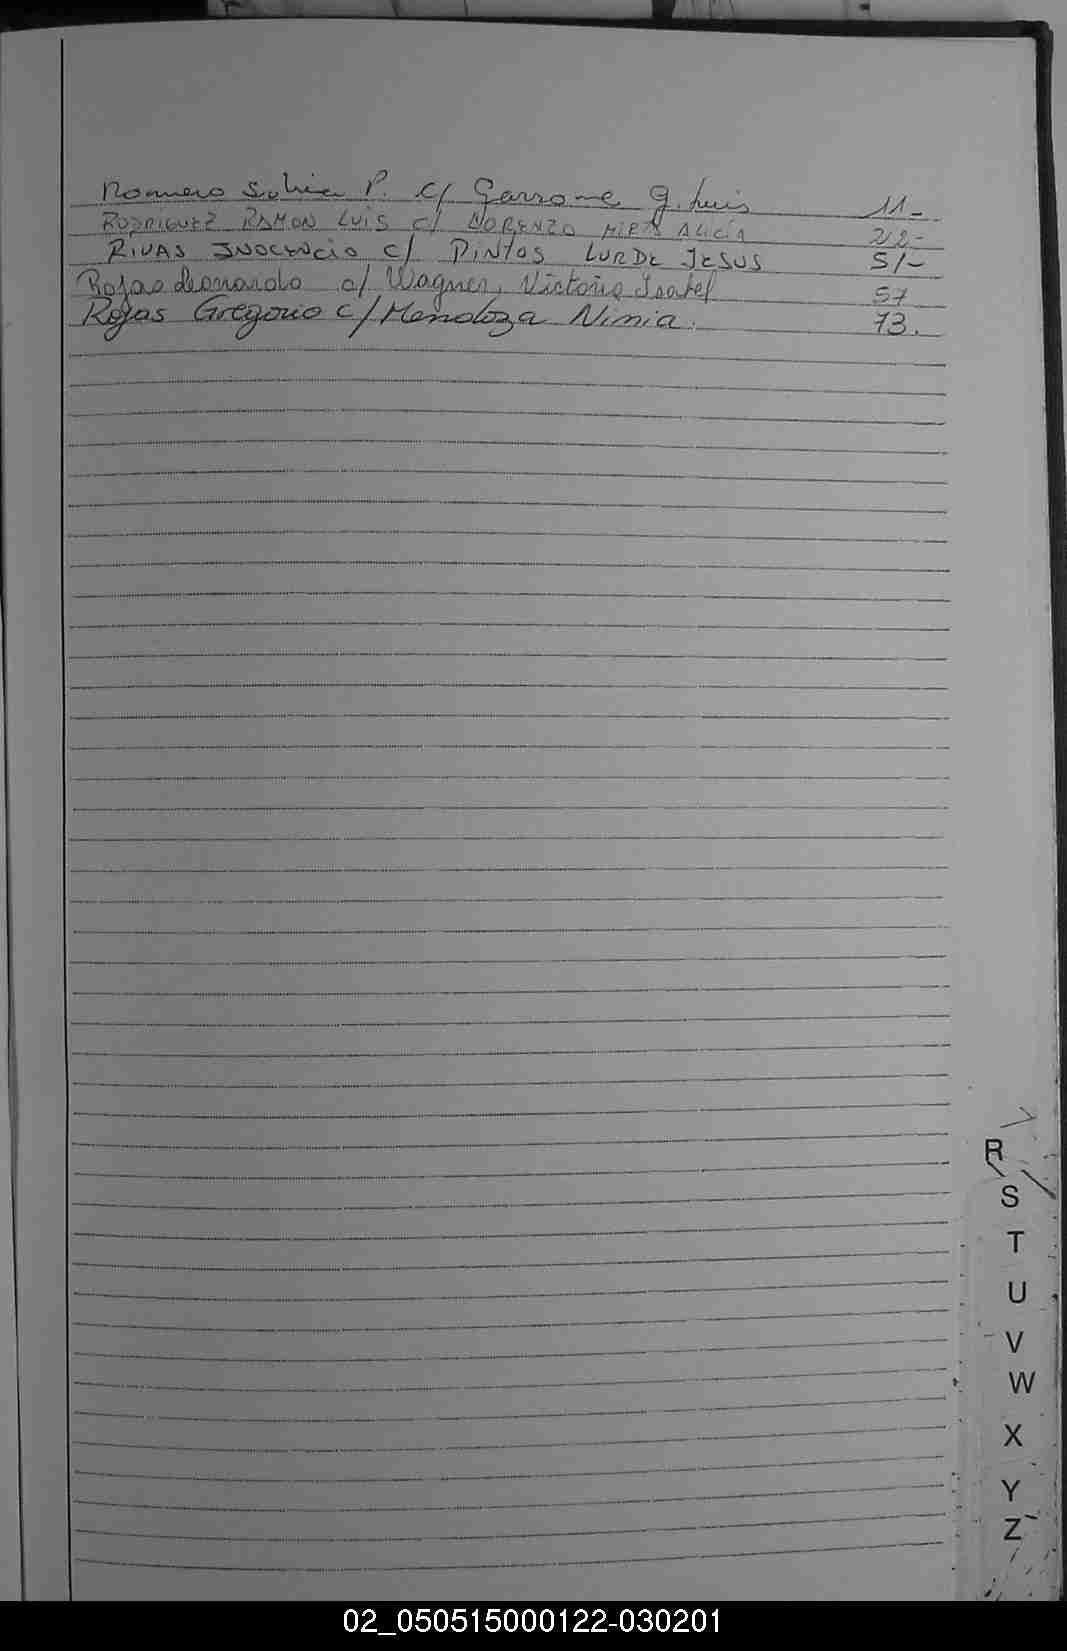 Romero Silvia P. c/ Garrone G. Luis 11-
RODRIGUEZ RAMON LUIS c/ LORENZO MIRTA ALICIA 22-
RIVAS INOCENCIO c/ PINTOS LURDE JESUS 51-
Rojas Leonardo c/ Wagner, Victoria Isabel 57
Rojas Gregorio c/ Mendoza Ninia. 73.
R
S
T
U
V
W
X
Y
Z
02_050515000122-030201